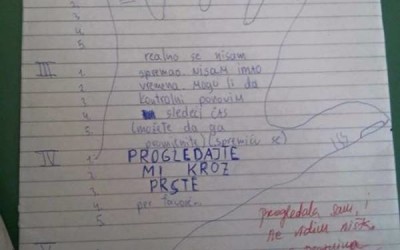 4
5
III 1. realno se nisam
2 spremao nisam imao
3 vremena mogu li da
4 kontrolni ponovim
5 sledeći čas
(možete da ga
precrtate) (spremiću se)
IV 1. PROGLEDAJTE
2. MI KROZ
3. PRSTE
4. per favore
5.
1/5
progledala sam, i
ne vidim ništa